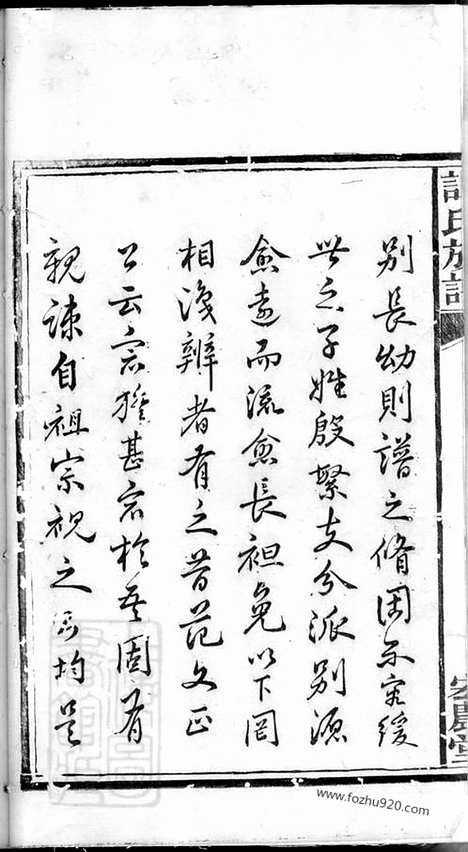 許氏族譜
宏農堂
別長幼則譜之脩固不容緩
世之子姓殷繁支分派別源
愈遠而流愈長袒免以下罔
相淺辨者有之昔范文正
公云宗族甚衆於吾固有
親疎自祖宗視之則均是
www.fozhu920.com